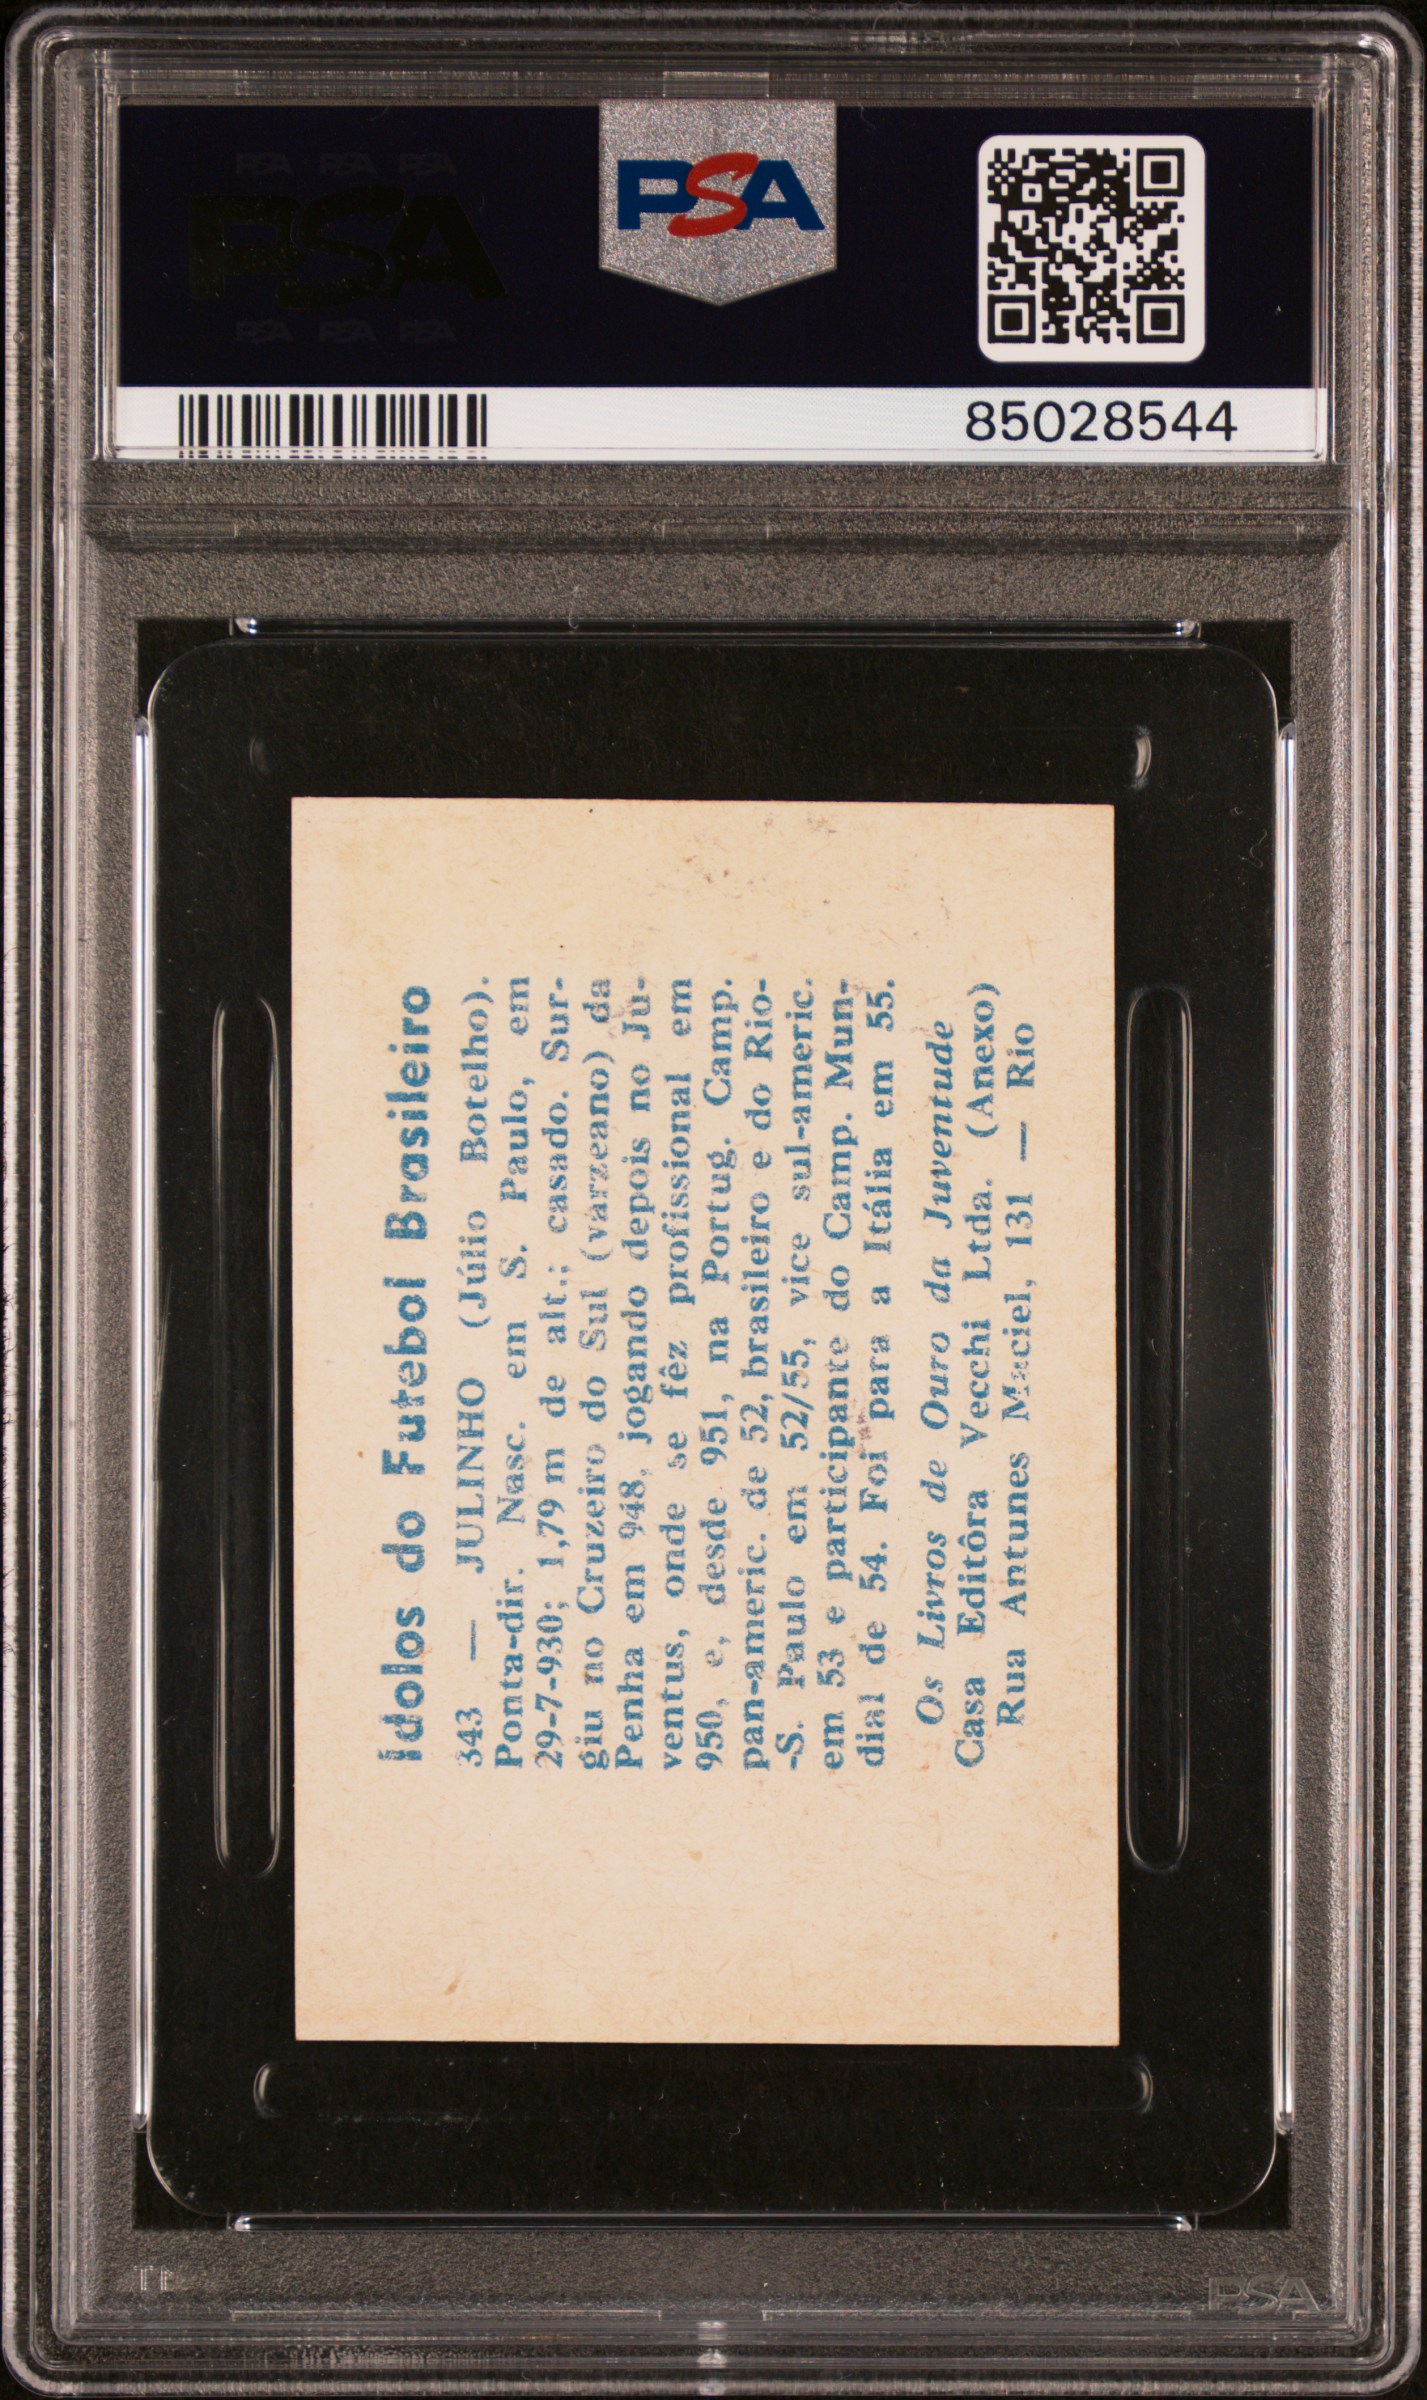 PSA PSA PSA
PSA
PSA PSA PSA
PSA
85028544
Ídolos do Futebol Brasileiro
343 — JULINHO (Júlio Botelho).
Ponta-dir. Nasc. em S. Paulo, em
29-7-930; 1,79 m de alt.; casado. Sur-
giu no Cruzeiro do Sul (varzeano) da
Penha em 948, jogando depois no Ju-
ventus, onde se fêz profissional em
950, e, desde 951, na Portug. Camp.
pan-americ. de 52, brasileiro e do Rio-
-S. Paulo em 52/55, vice sul-americ.
em 53 e participante do Camp. Mun-
dial de 54. Foi para a Itália em 55.
Os Livros de Ouro da Juventude
Casa Editôra Vecchi Ltda. (Anexo)
Rua Antunes Maciel, 131 — Rio
PSA